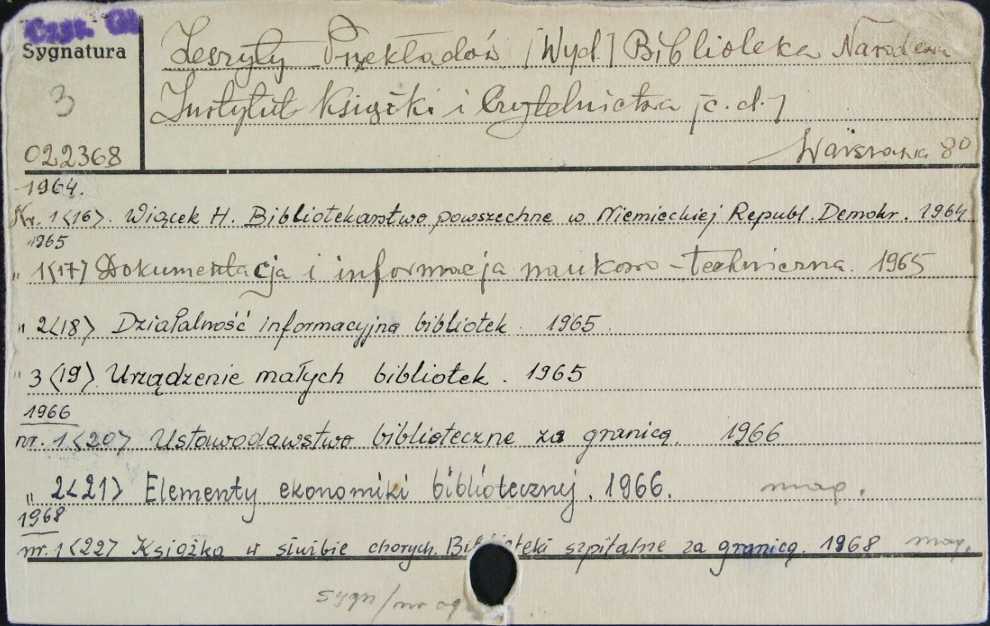 Czyt. Gł.
Sygnatura
3
022368
Zeszyty Przekładów [Wyd.] Biblioteka Narodowa
Instytut Książki i Czytelnictwa [c.d.]
Warszawa 80
1964.
Nr. 1<16>. Wiącek H. Bibliotekarstwo powszechne w Niemieckiej Republ. Demokr. 1964
1965
" 1<17> Dokumentacja i informacja naukowo-techniczna. 1965
" 2<18> Działalność informacyjna bibliotek. 1965.
3 <19> Urządzenie małych bibliotek. 1965
1966
nr. 1<20> Ustawodawstwo biblioteczne za granicą. 1966
" 2<21> Elementy ekonomiki bibliotecznej. 1966. mag.
1968
nr. 1<22> Książka w służbie chorych. Biblioteki szpitalne za granicą. 1968 mag.
sygn/nr